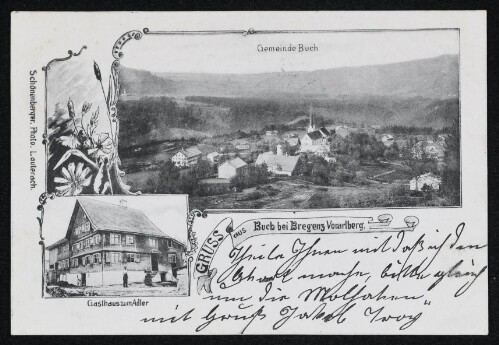 Gemeinde Buch
Schönenberger, Photo, Lauterach.
GRUSS aus Buch bei Bregenz Vorarlberg.
Gasthaus zum Adler
Theile Ihnen mit daß ich den
mache, bitte gleich
um die
mit Gruß Jakob